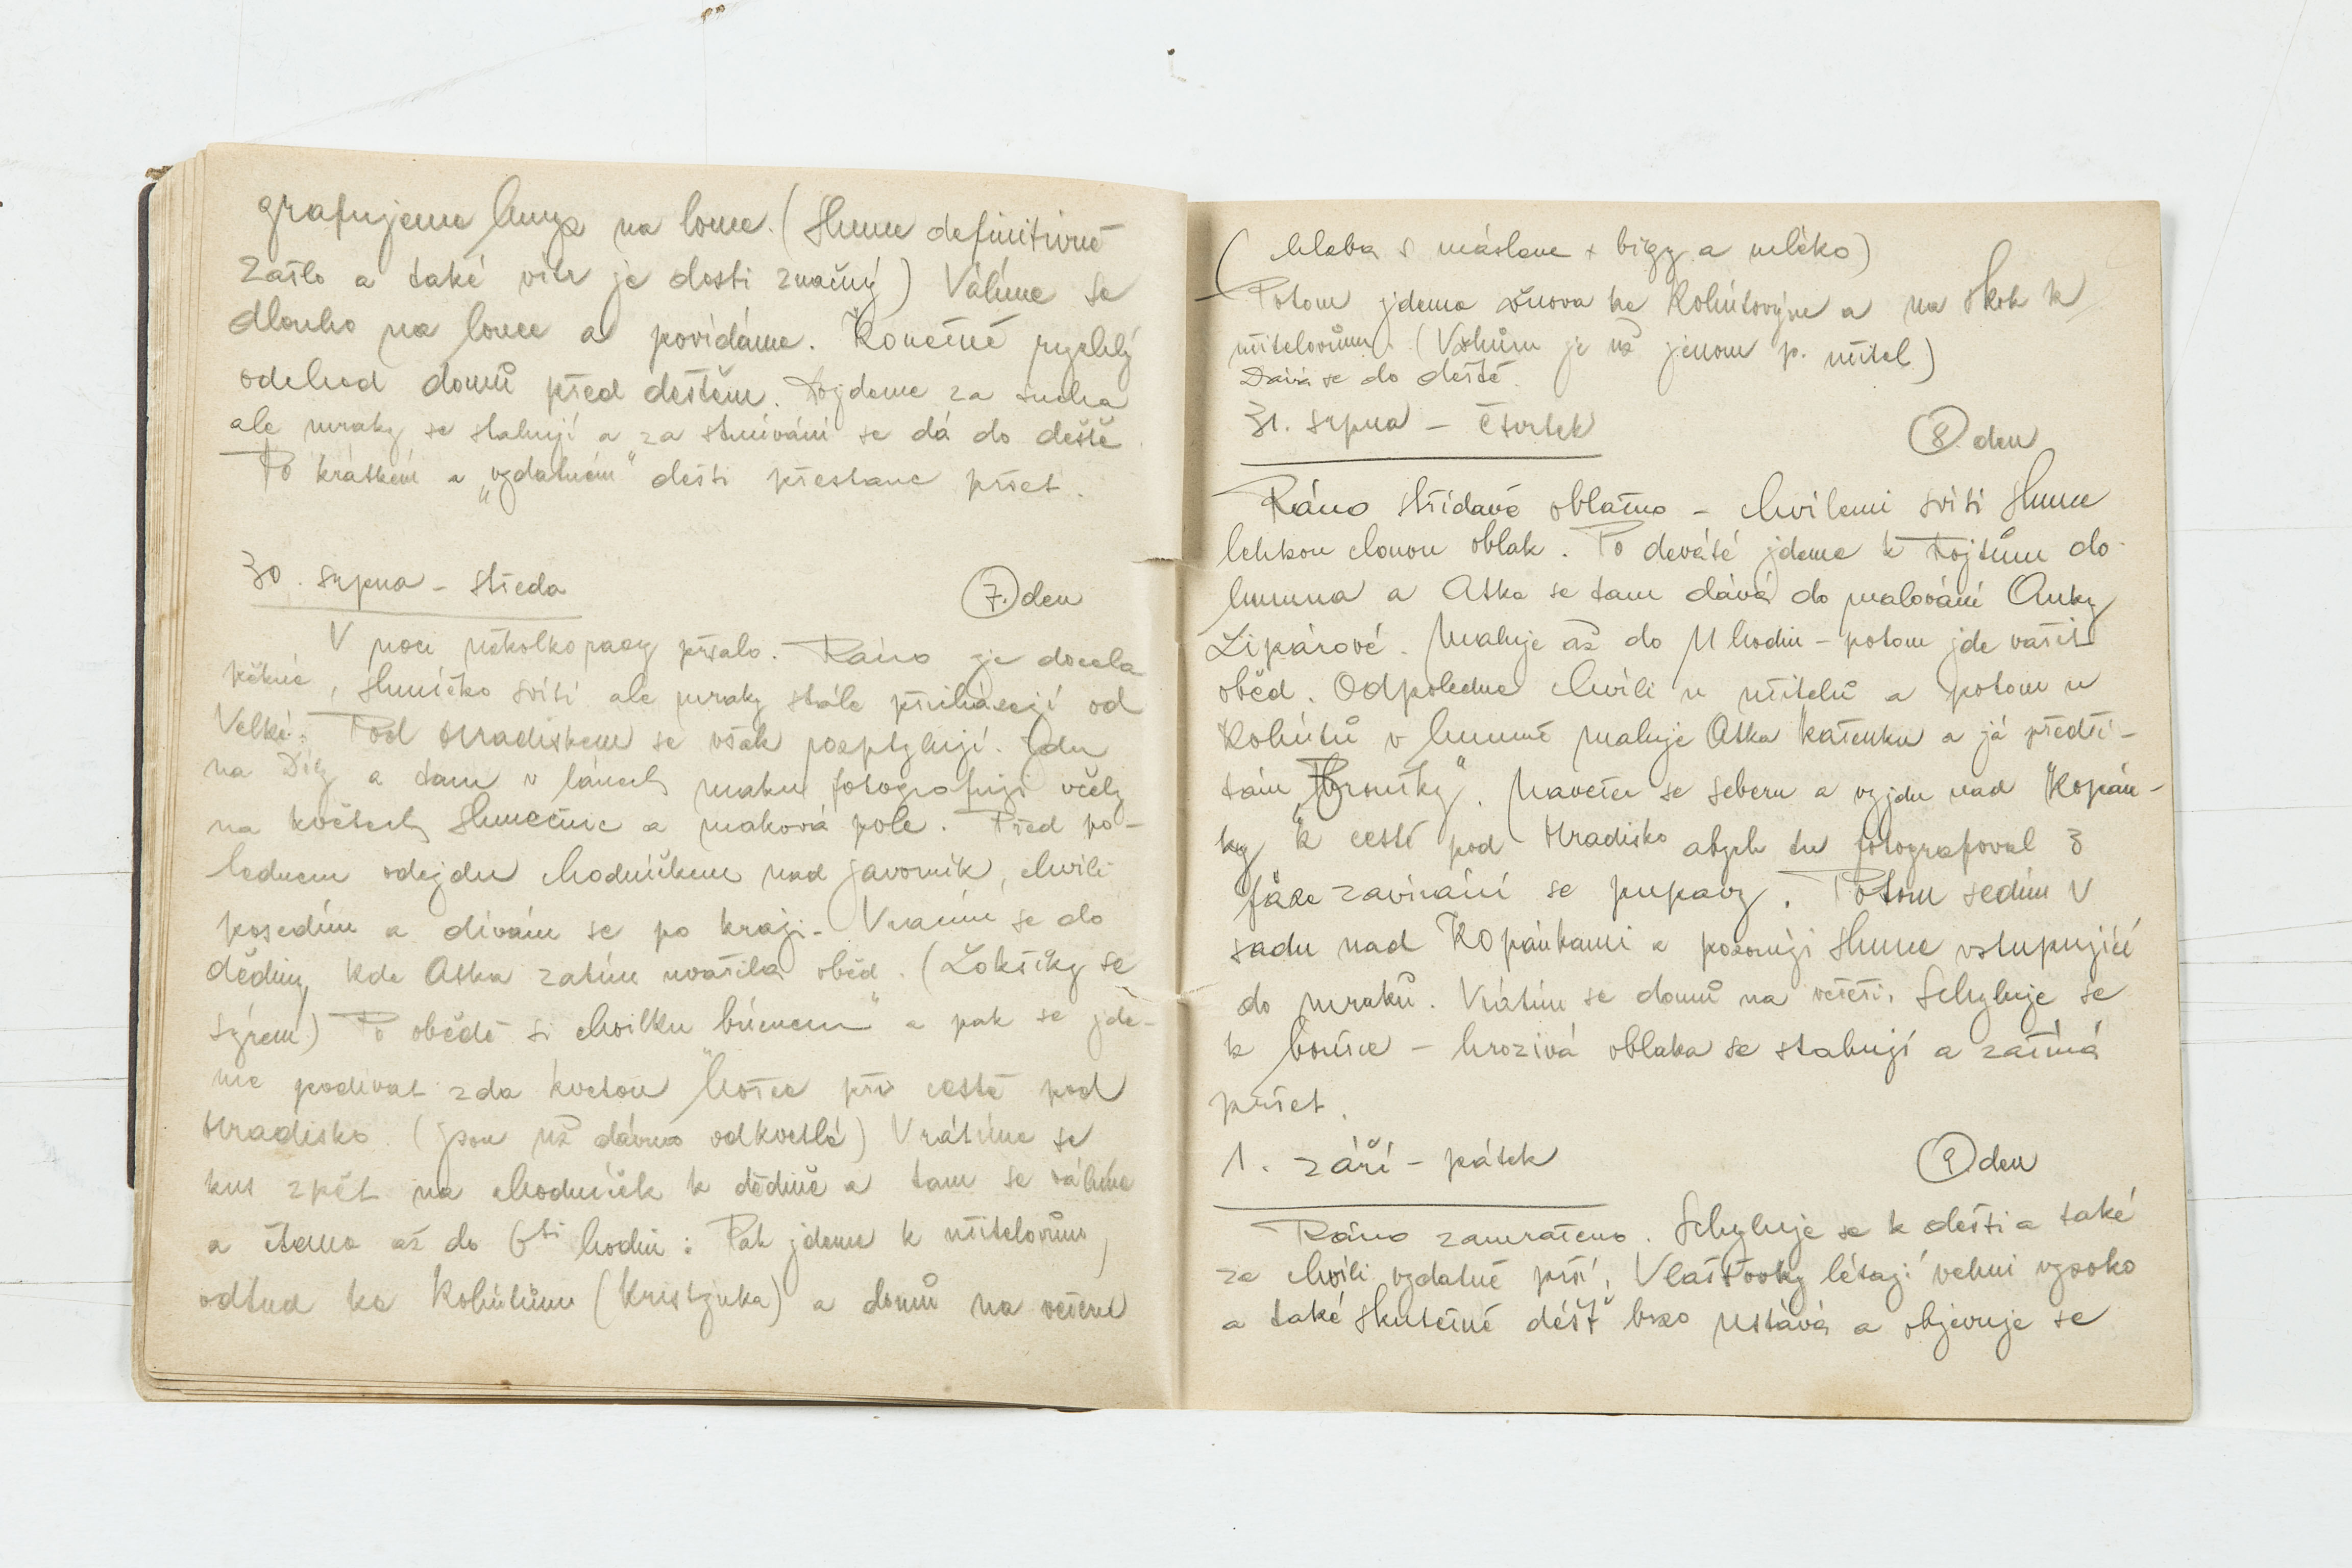 grafujeme hmyz na louce. (Slunce definitivně
zašlo a také vítr je dosti značný) Válíme se
dlouho na louce a povídáme. Konečně rychlý
odchod domů před deštěm. Dojdeme za sucha
ale mraky se stahují a za stmívání se dá do deště.
Po krátkém a „vydatném" dešti přestane pršet.
30. srpna - středa
7. den
V noci několikrat pršalo. Ráno je docela
pěkně, sluníčko svítí ale mraky stále přicházejí od
Velké. Pod Hradiskem se však rozptylují. Jdu
na Díly a tam v lánech maku fotografuji včely
na květech slunečnic a maková pole. Před po-
lednem odejdu chodníčkem nad Javorník, chvíli
posedím a dívám se po kraji. Vracím se do
dědiny kde Atka zatím uvařila oběd. (Lokšičky se
sýrem) Po obědě si chvilku „ a pak se jde-
me podívat zda kvetou hořce při cestě pod
Hradisko. (jsou už dávno odkvetlé) Vrátíme se
kus zpět na chodníček k dědině a tam se válíme
a čteme až do 6ti hodin. Pak jdeme k učitelovům,
odtud ke Kohútům (Kristýnka) a domů na večeru
( chleba s máslem + a mléko)
Potom jdeme znova ke Kohútovým a na skok k
učitelovům. (Vzhůru je už jenom p. učitel)
Dává se do deště.
31. srpna - čtvrtek
8. den
Ráno střídavě oblačno - chvílemi svítí slunce
lehkou clonou oblak. Po deváté jdeme k Fojtům do
humna a Atka se tam dává do malování Anky
Lipárové. Maluje až do 11 hodin - potom jde vařit
oběd. Odpoledne chvíli u učitelů a potom u
Kohútů v humně maluje Atka Katenku a já předčí-
tám „Broučky". Navečer se seberu a vyjdu nad „Kopán-
ky" k cestě pod Hradisko abych tu fotografoval 3
fáze zavírání se pupavy. Potom sedím v
sadu nad Kopánkami a pozoruji slunce vstupující
do mraků. Vrátím se domů na večeři. Schyluje se
k bouřce - hrozivá oblaka se stahují a začíná
pršet.
1. září - pátek
9. den
Ráno zamračeno. Schyluje se k dešti a také
za chvíli vydatně prší. Vlaštovky létají velmi vysoko
a také skutečně déšť brzo ustává a objevuje se